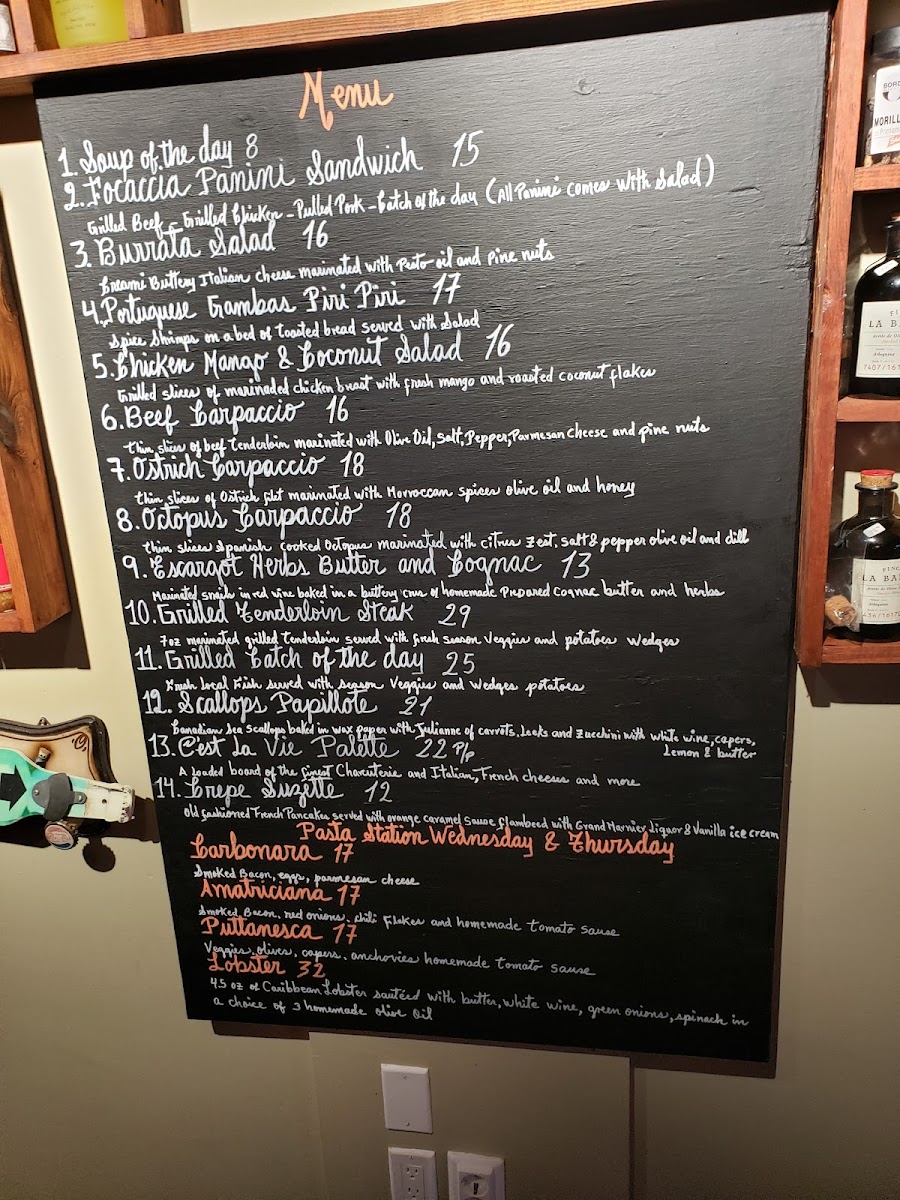 Menu
1. Soup of the day 8
2. Focaccia Panini Sandwich 15
Grilled Beef - Grilled Chicken - Pulled Pork - Catch of the day (All Panini comes with Salad)
3. Burrata Salad 16
Creami Buttery Italian cheese marinated with Pesto oil and pine nuts
4. Portuguese Gambas Piri Piri 17
Spice Shrimps on a bed of toasted bread served with Salad
5. Chicken Mango & Coconut Salad 16
Grilled slices of marinaded chicken breast with fresh mango and roasted coconut flakes
6. Beef Carpaccio 16
thin slices of beef tenderloin marinated with Olive Oil, Salt, Pepper, Parmesan Cheese and pine nuts
7. Ostrich Carpaccio 18
thin slices of Ostrich filet marinated with Morroccan spices olive oil and honey
8. Octopus Carpaccio 18
thin slices Spanish cooked Octopus marinated with citrus zest, salt & pepper olive oil and dill
9. Escargot Herbs Butter and Cognac 13
Marinated snails in red wine baked in a buttery crus of homemade Prepared cognac butter and herbs
10. Grilled Tenderloin Steak 29
7oz merinated grilled tenderloin served with fresh season veggies and potatoes wedges
11. Grilled Catch of the day 25
Fresh local Fish served with season Veggies and Wedges potatoes
12. Scallops Papillote 21
Canadian Sea Scallops baked in wax paper with Julianne of carrots, Leeks and Zucchini with white wine, capers,
Lemon & butter
13. C'est La Vie Palette 22 P/P
A loaded board of the finest Charcuterie and Italian, French cheeses and more
14. Crepe Suzette 12
Old fashioned French Pancake served with orange caramel sause flambeed with Grand Marnier Liquor & Vanilla ice cream
Pasta Station Wednesday & Thursday
Carbonara 17
Smoked Bacon, eggs, parmesan cheese
Amatriciana 17
Smoked Bacon, red onions, chili flakes and homemade tomato sause
Puttanesca 17
Veggies, olives, capers, anchovies homemade tomato sause
Lobster 32
4.5 oz of Caribbean Lobster sautéed with butter, white wine, green onions, spinach in
a choice of 3 homemade olive oil
MORILL
LA BA
7407/161
LA BA